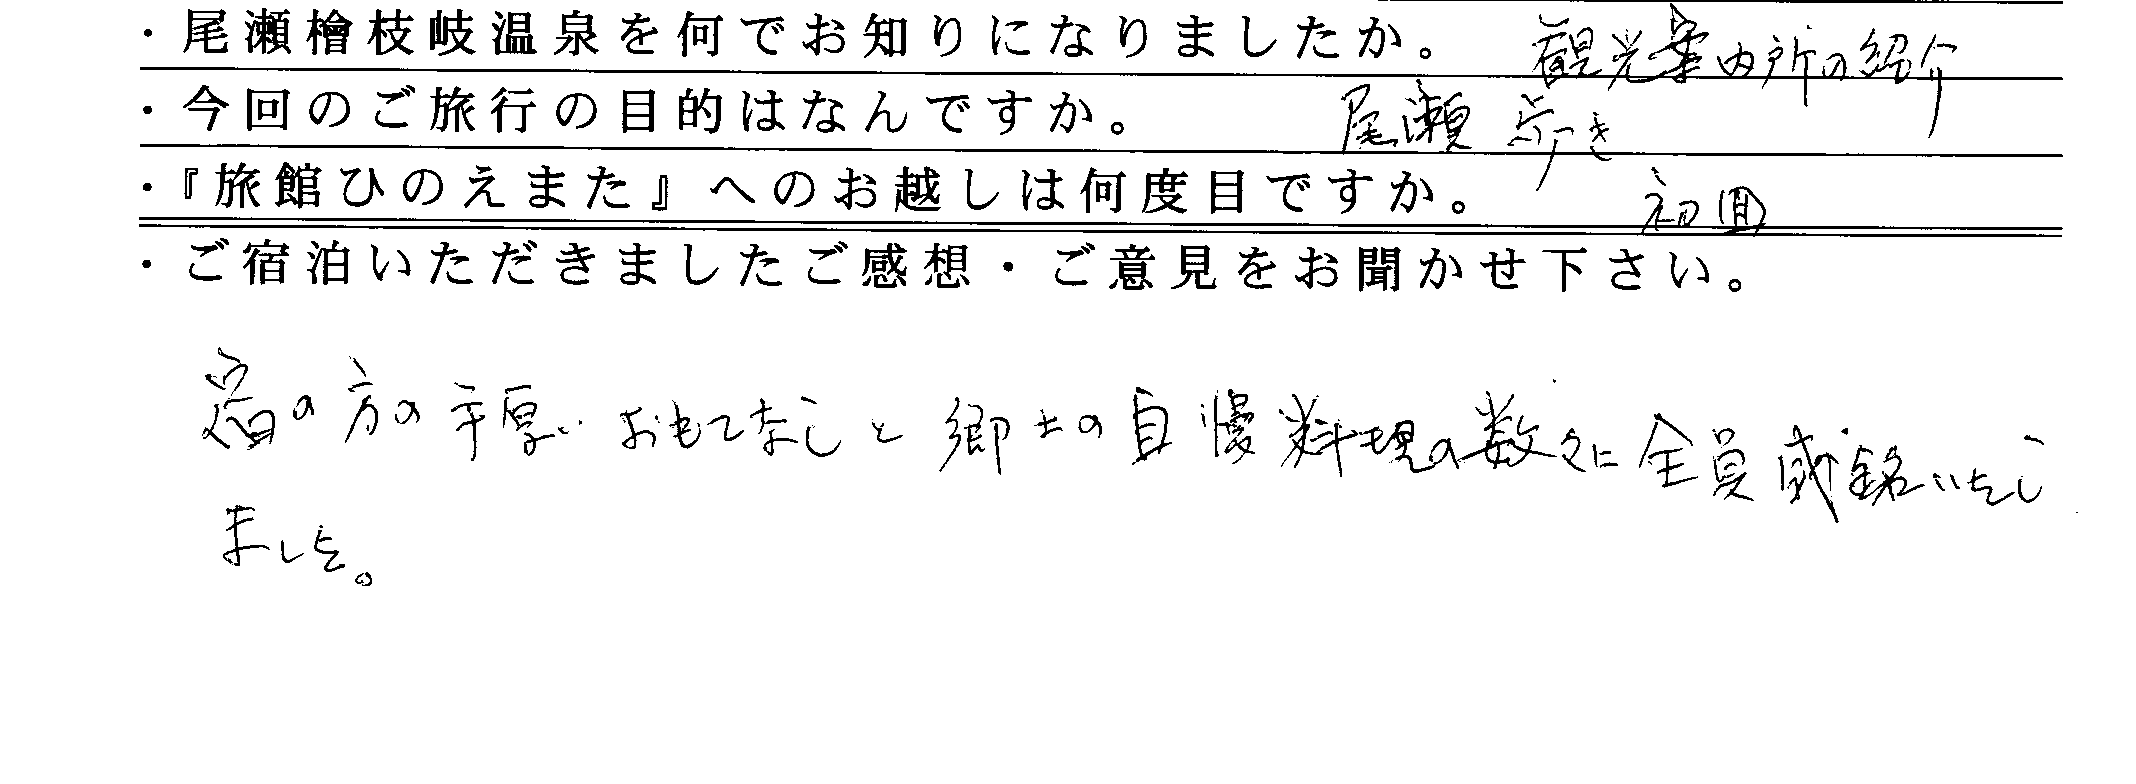 ・尾瀬檜枝岐温泉を何でお知りになりましたか。 観光案内所の紹介
・今回のご旅行の目的はなんですか。 尾瀬歩き
・『旅館ひのえまた』へのお越しは何度目ですか。 初回
・ご宿泊いただきましたご感想・ご意見をお聞かせ下さい。
宿の方の手厚いおもてなしと郷土の自慢料理の数々に全員感銘いたし
ました。